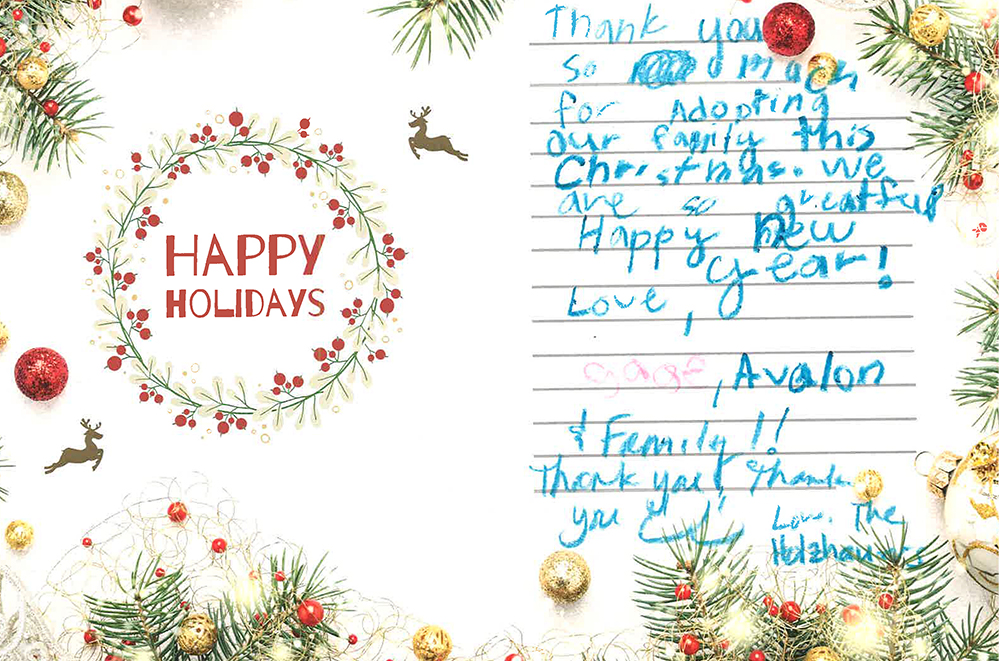 HAPPY
HOLIDAYS
Thank you
so much
for Adopting
our family this
Christmas. We
are so greatful
Happy New
year!
Love,
gage, Avalon
& Family!!
Thank you! Thank
you
Love, The
Holzhauers